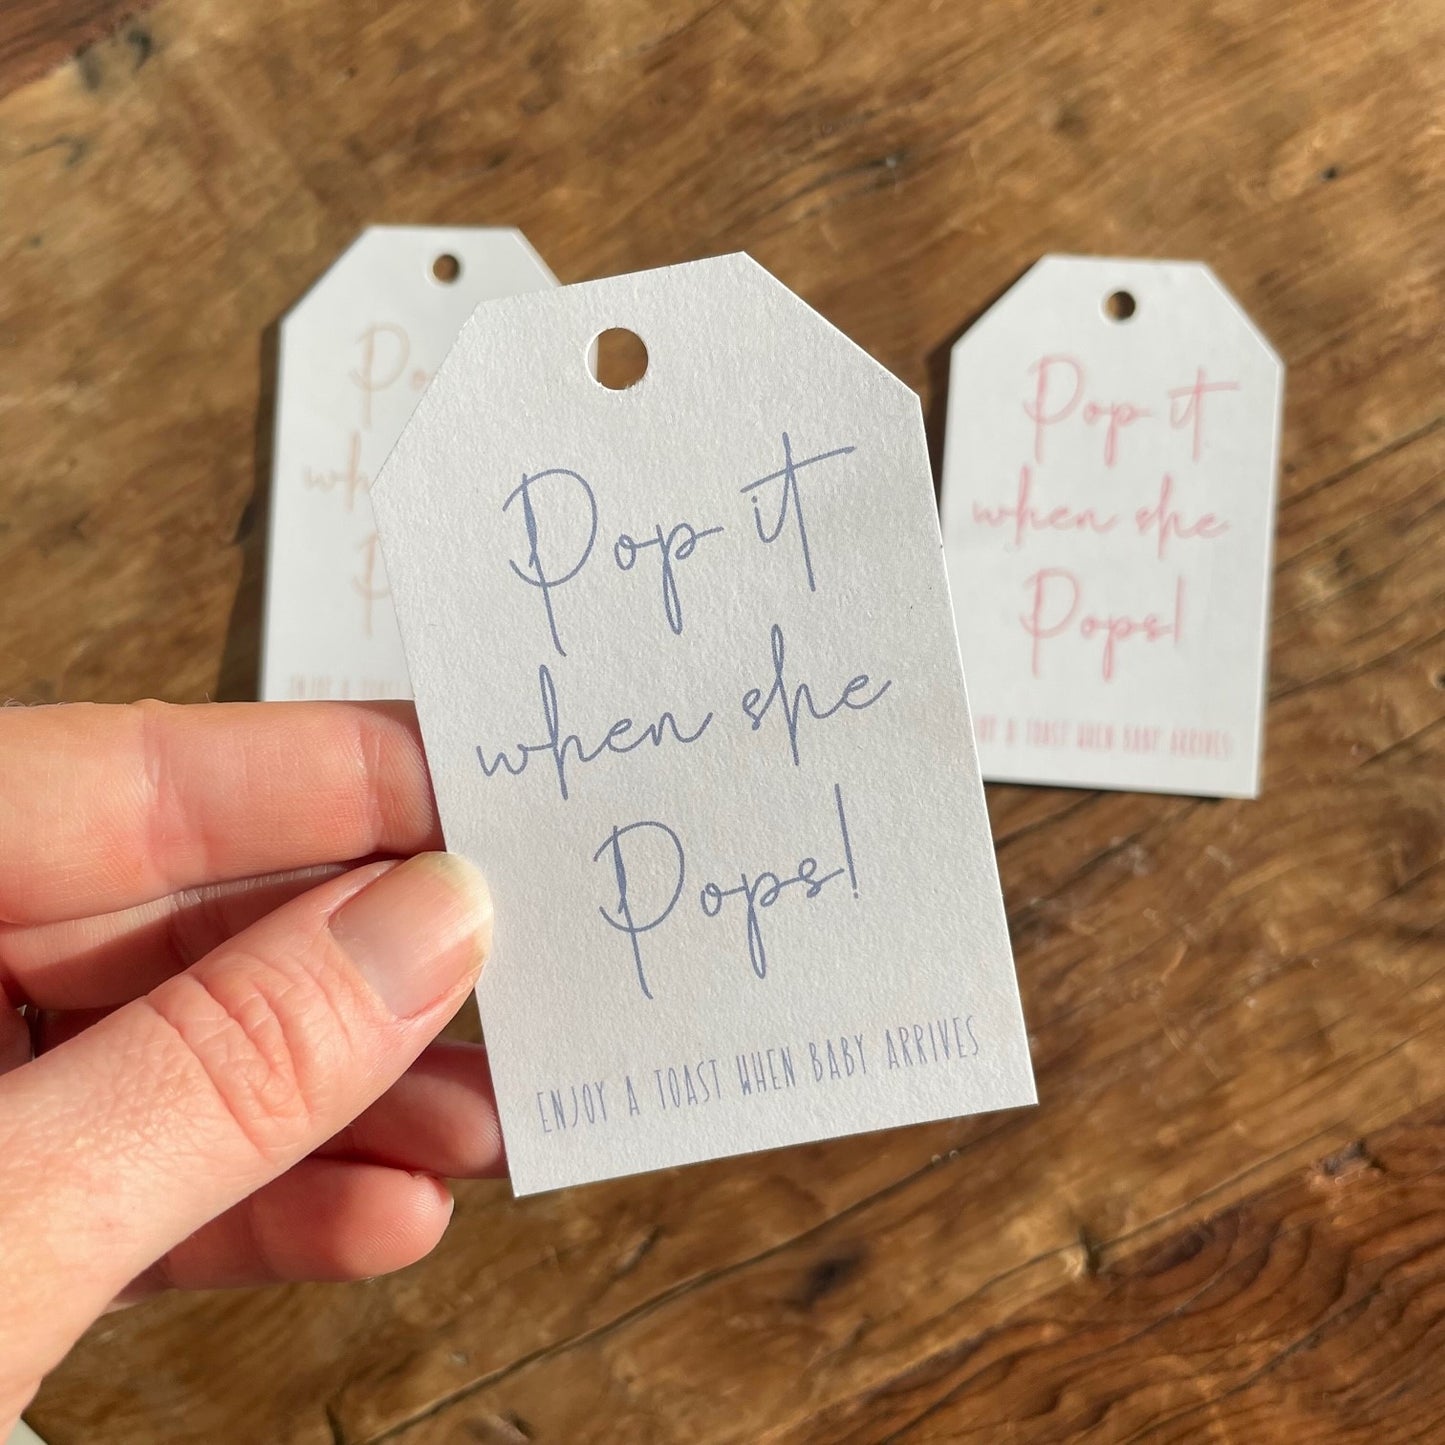 Pop it
when she
Pops!
ENJOY A TOAST WHEN BABY ARRIVES
Pop it
when she
Pops!
A TOAST WHEN BABY ARRIVES
ENJOY A